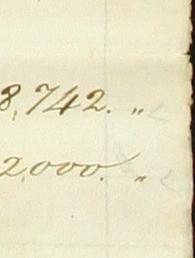 8,742. "
2,000. "